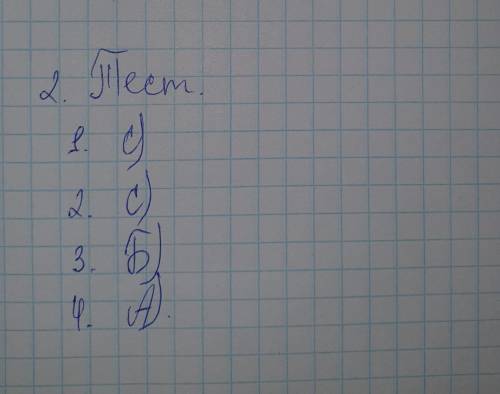 2. Тест.
1. С)
2. С)
3. Б)
4. А).